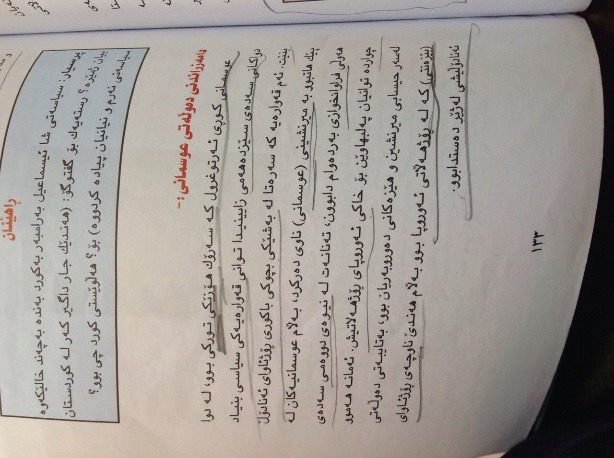 راهێنان
پرسیار: سیاسەتی شا ئیسماعیل بەرامبەر بەکورد بەندە بەچەند خاڵێکەوە
بیان ژمێرە؟ رستەیەک بۆ گفتوگۆ: (هەندێک جار داگیر کەر لە کوردستان
سیاسەتی نەرم و نیانیان پیادە کردووە) بۆ؟ هەڵوێستی کورد چی بوو؟
دامەزراندنی دەوڵەتی عوسمانی:-
عوسمانی کوڕی ئەرتوغرول کە سەرۆک هۆزێکی تورکی بوو، لە دوا
دواکانی سەدەی سێزدەهەمی زاینییدا توانی قەوارەیەکی سیاسی بنیاد
بنێت. ئەم قەوارەیە کە سەرەتا لە بەشێکی بچوکی باکوری رۆژئاوای ئەنادۆڵ
پێک هاتبوو بە میرنشینی (عوسمانی) ناوی دەرکرد، بەڵام عوسمانیەکان لە
هەوڵی فراوانخوازی بەردەوام دابوون، تەنانەت لە نیوەی دووەمی سەدەی
چواردە توانیان پەلبهاوێن بۆ خاکی ئەوروپای رۆژهەڵاتیش ئەمانە هەموو
لەسەر حیسابی میرنشین و هێزەکانی دەوروبەریان بوو، بەتایبەتی دەوڵەتی
(بێزەنتی) کە لە رۆژهەڵاتی ئەوروپا بوو بەڵام هەندێ ناوچەی رۆژئاوای
ئەنادۆڵیشی لەژێر دەستدابوو.
١٣٣